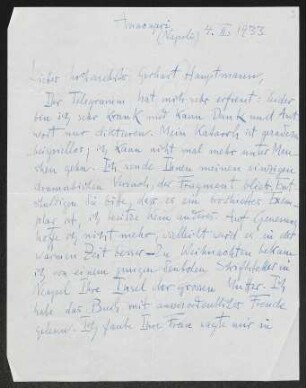 Anacapri
(Napoli) 4. II. 1933
Lieber hochverehrter Gerhart Hauptmann,
Ihr Telegramm hat mich sehr erfreut: Leider
bin ich sehr krank und kann Dank und Ant
wort nur diktieren. Mein Katarrh ist geradezu
beispiellos; ich kann nicht mal mehr unter Men
schen gehn. Ich sende Ihnen meinen einzigen
dramatischen Versuch, der Fragment blieb. Ent
schuldigen Sie bitte, dass es ein broschiertes Exem
plar ist, ich besitze kein anderes. Auf Genesung
hoffe ich nicht mehr, vielleicht wird es in der
warmen Zeit besser — Zu Weihnachten bekam
ich von einem jungen Schriftsteller in
Neapel Ihre Insel der grossen Mutter. Ich
habe das Buch mit ausserordentlicher Freude
gelesen. Ich glaube Ihre Frau sagte mir in